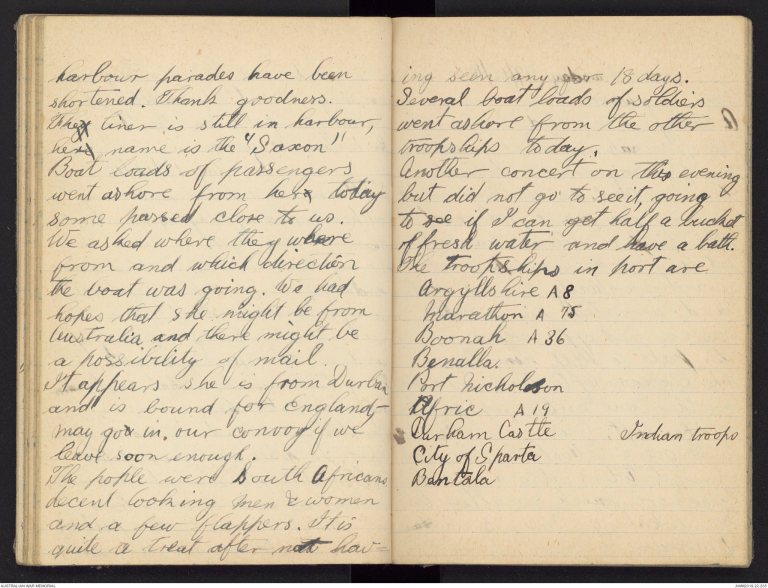 harbour parades have been
shortened. Thank goodness.
The liner is still in harbour,
her name is the "Saxon"
Boat loads of passengers
went ashore from her today
some passed close to us.
We asked where they where
from and which direction
the boat was going. We had
hopes that she might be from
Australia and there might be
a possibility of mail.
It appears she is from Durban
and is bound for England –
may go in our convoy if we
leave soon enough.
The pople were South Africans
decent looking men & women
and a few flappers. It is
quite a treat after not hav=
ing seen any for 18 days.
Several boat loads of soldiers
went ashore from the other
troopships today.
Another concert on this evening
but did not go to see it, going
to see if I can get half a bucket
of fresh water and have a bath.
The troopships in port are
Argyllshire A 8
Marathon A 75
Boonah A 36
Benalla.
Port Nicholson
Afric A 19
Durham Castle Indian troops
City of Sparta
Bantala
AUSTRALIAN WAR MEMORIAL